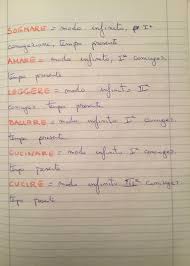 SOGNARE = modo infinito, Iª
coniugazione, tempo presente
AMARE = modo infinito, Iª coniugaz.
tempo presente
LEGGERE = modo infinito IIª
coniugaz. tempo presente
BALLARE = modo infinito, Iª coniugaz.
tempo presente
CUCINARE = modo infinito Iª coniugaz.
tempo presente
CUCIRE = modo infinito IIIª coniugaz.
tempo presente